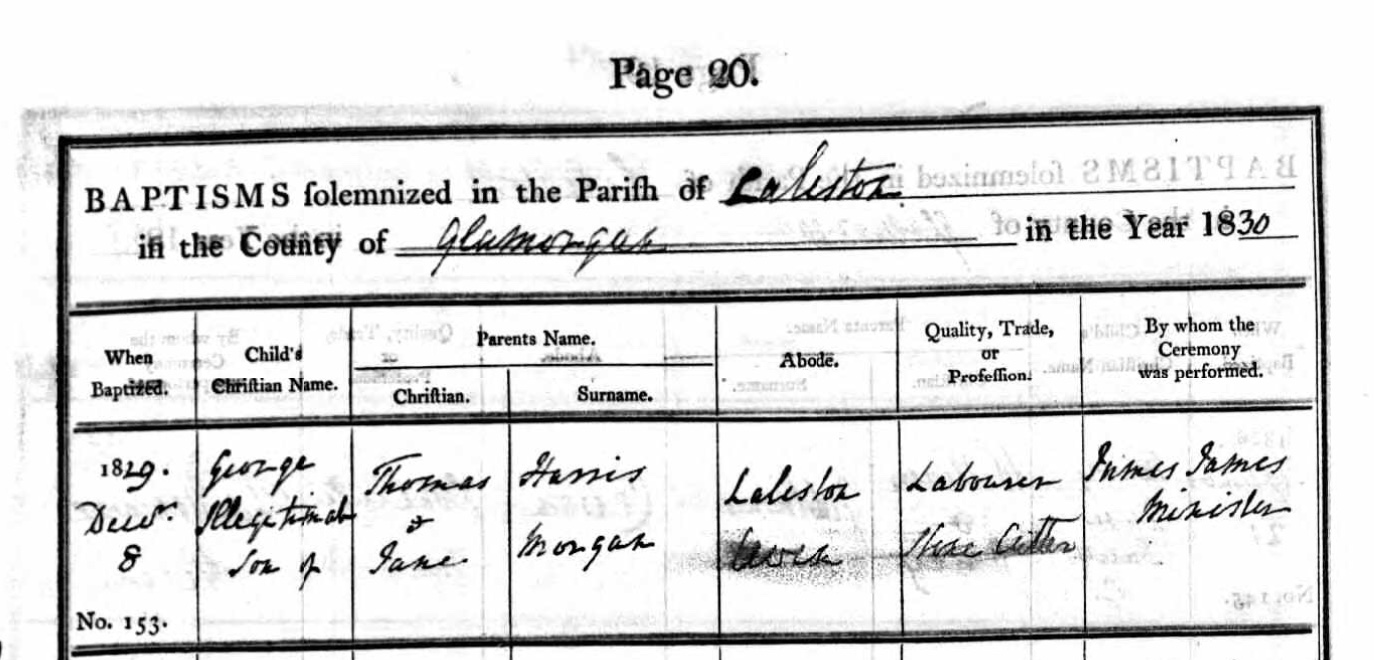 Page 20.
BAPTISMS solemnized in the Parish of Laleston
in the County of Glamorgan in the Year 1830
When Baptized.
Child's Christian Name.
Parents Name.
Christian.
Surname.
Abode.
Quality, Trade, or Profession.
By whom the Ceremony was performed.
1829.
Decr.
8
No. 153.
George
Illegitimate
Son of
Thomas
&
Jane
Harris
Morgan
Laleston
Labourer
Cutter
James James
Minister